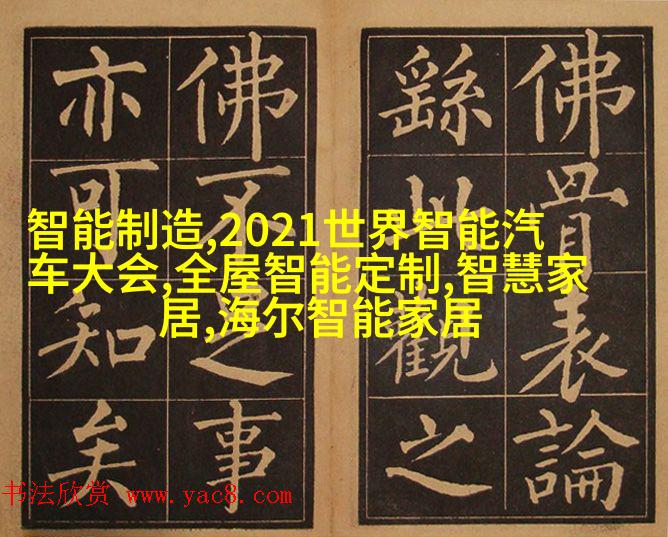 佛骨表論
繇此觀之
佛不足事
亦可知矣
智能制造,2021世界智能汽
车大会,全屋智能定制,智慧家
居,海尔智能家居
书法欣赏 www.yac8.com